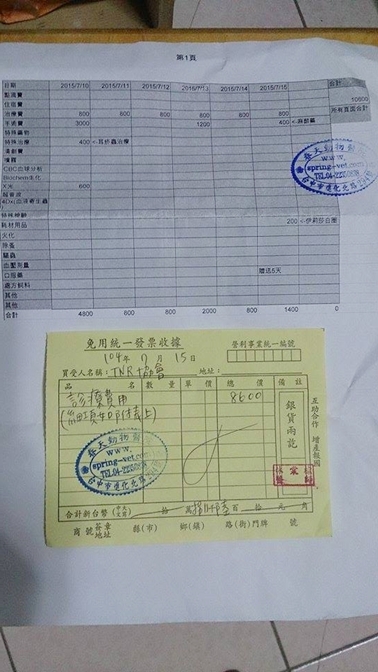 第1頁
日期 2015/7/10 2015/7/11 2015/7/12 2015/7/13 2015/7/14 2015/7/15 合計
點滴費 10600
住宿費 所有頁面合計
治療費 800 800 800 800 800 800
手術費 3000 1200 400 <-麻醉藥
特殊藥物
特殊治療 400 <-耳疥蟲治療
CBC血球分析
Biochem生化
X光 600
超音波
耗材用品 200 <-伊莉莎白圈
火化
除蚤
驅蟲
血壓測量
口服藥 贈送5天
處方飼料
其他
其他
合計 4800 800 800 2000 800 1400 0
春天動物醫
www.
spring-vet.com
台中市進化北路
免用統一發票收據
104年 7月 15日
營利事業統一編號
買受人名稱：TNR協會 地址：
品名 數量 單價 總價 備註
診療費用 8600
(細項如附表上)
銀貨兩訖
互助合作 增產報國
春天動物醫
www.
spring-vet.com
台中市進化北路
合計新台幣 拾 萬捌仟陸百 拾 元 角
商號 蓋章 地址 縣(市) 鄉(鎮) 路(街)門牌 號